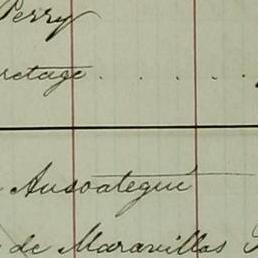 Perry
retage . . . . . .
Ausoategui
de Maravillas